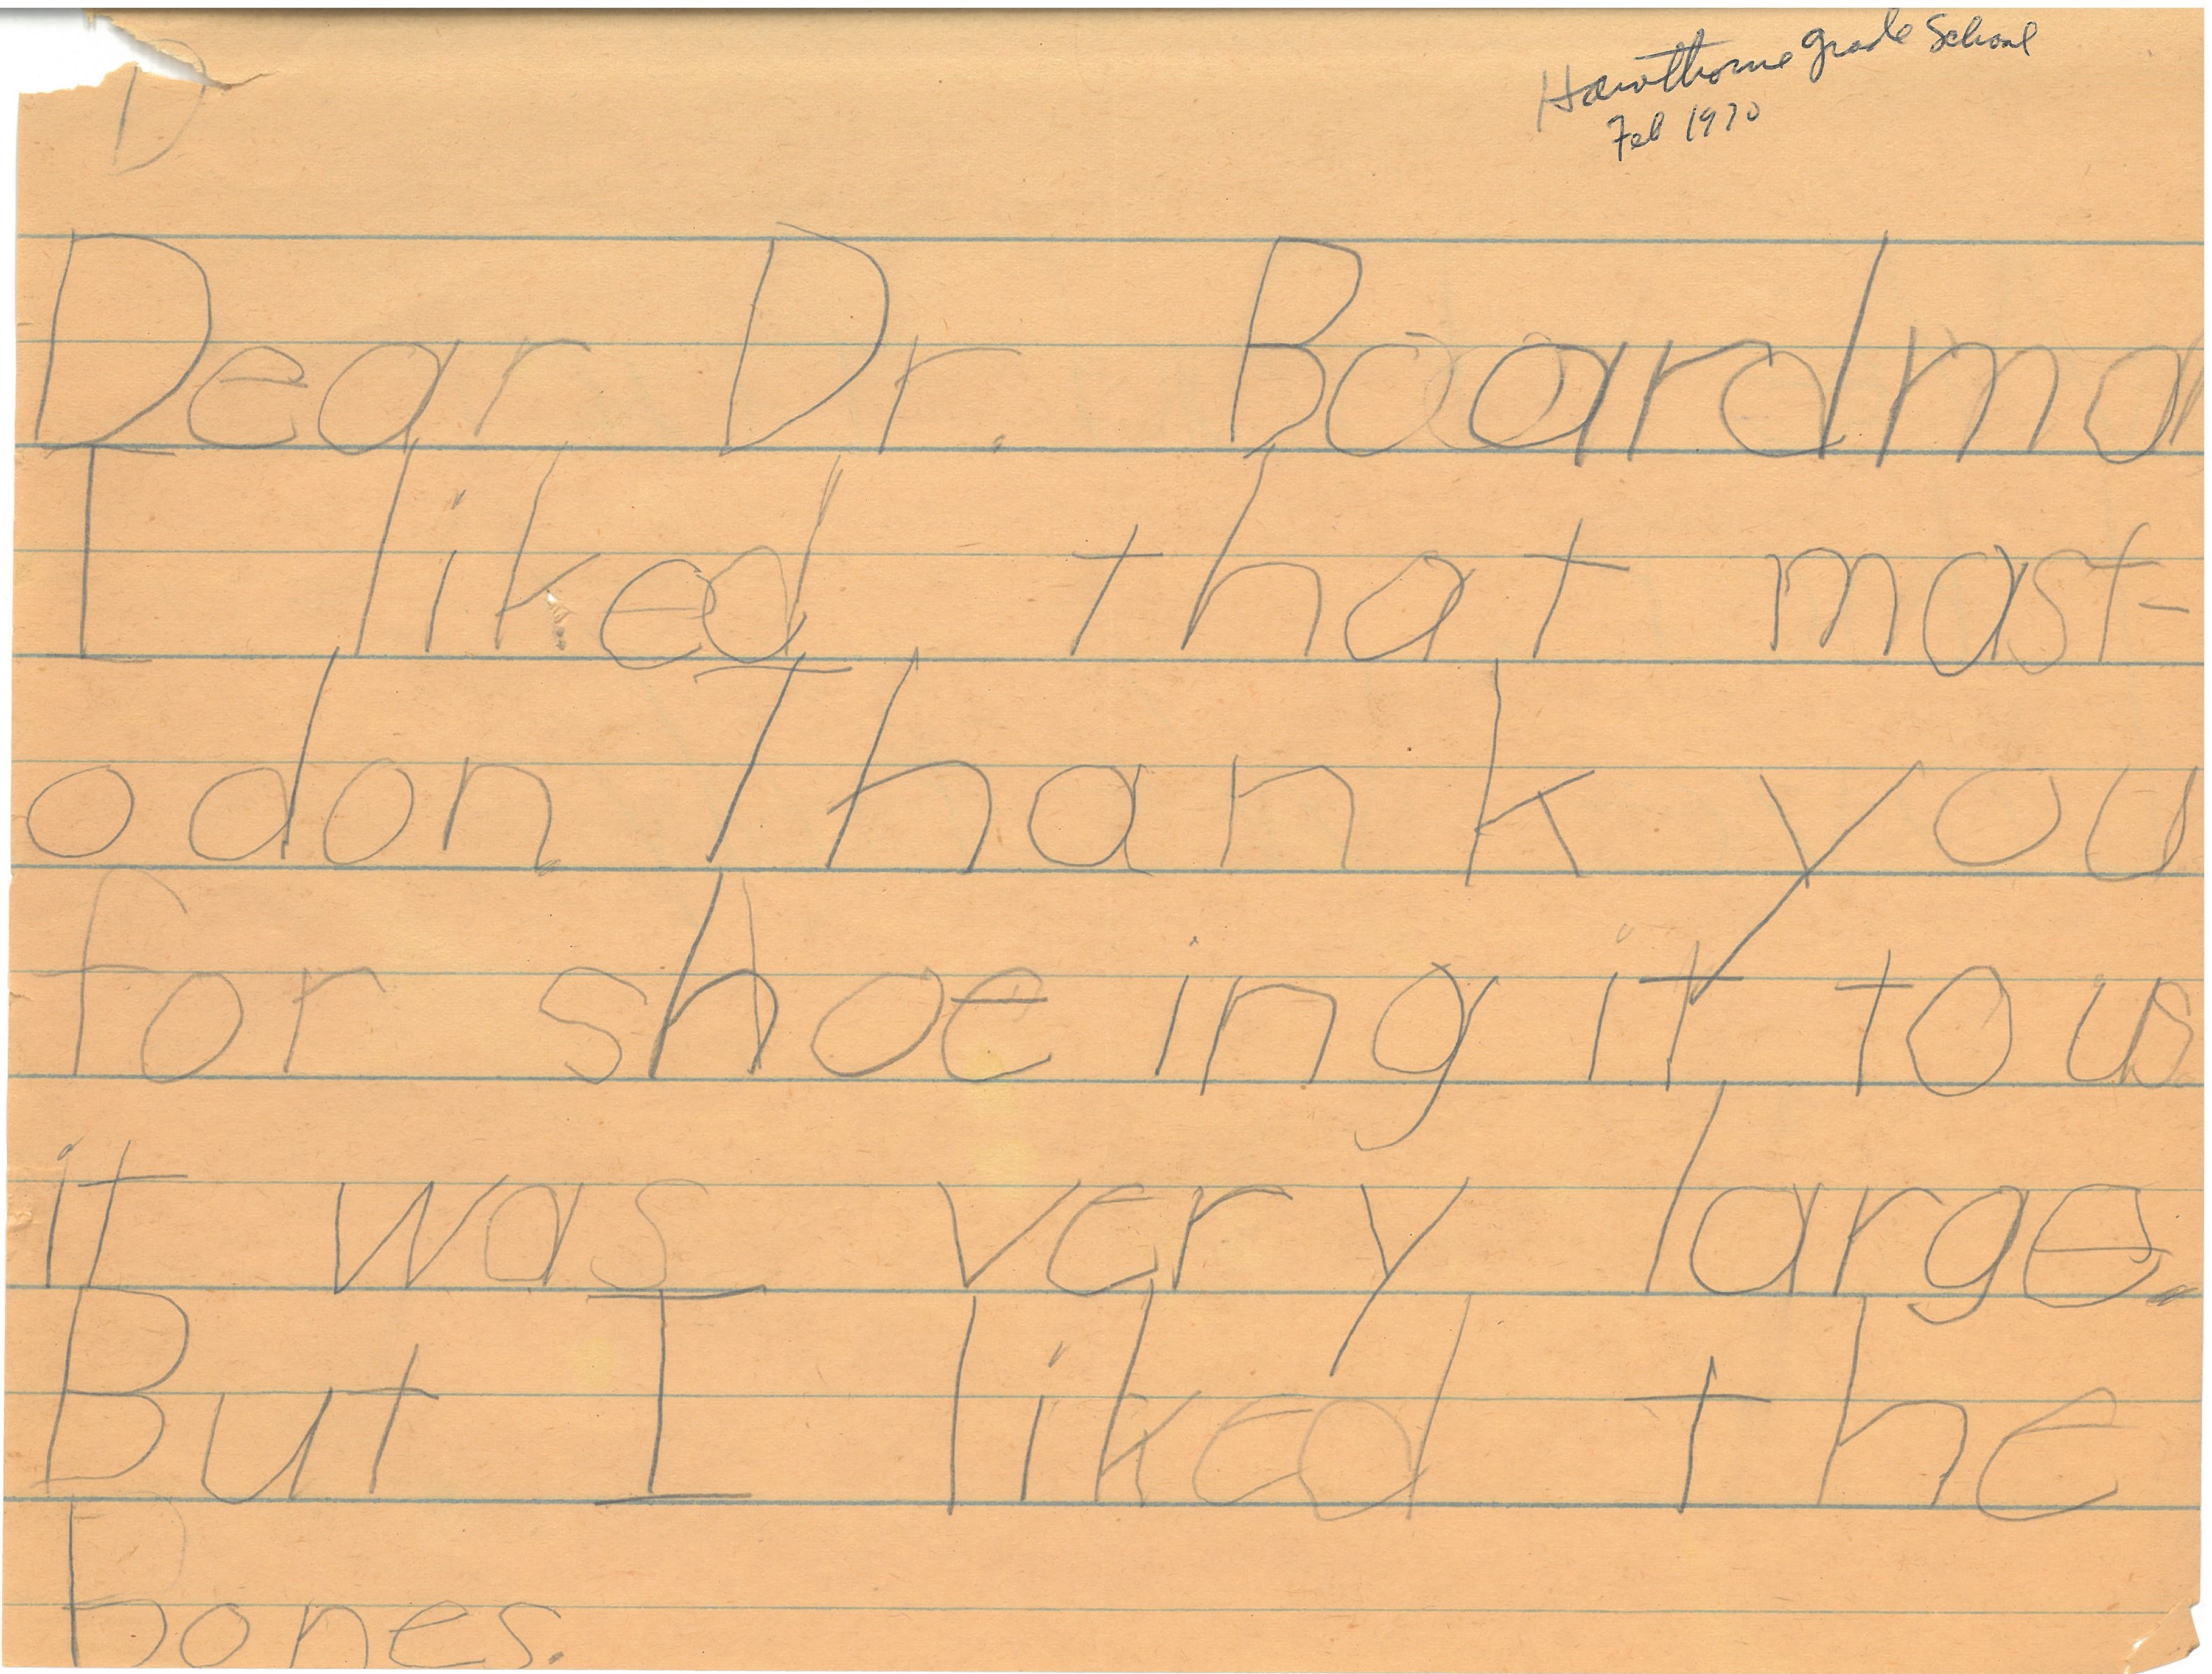 Hawthorne grade School
Feb 1970
D
Dear Dr. Boardma
I liked that mast-
odon. Thank you
for shoeing it to us.
it was very large.
But I liked the
bones.